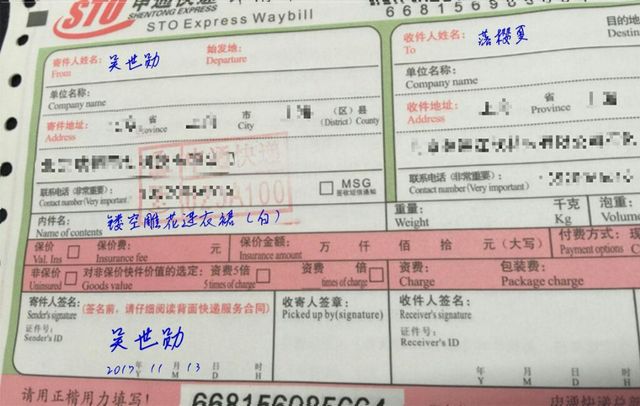 STO 申通快递
SHENTONG EXPRESS
STO Express Waybill
寄件人姓名: 吴世勋 始发地:
From Departure
单位名称:
Company name
寄件地址: 省 市 (区)县
Address Province City (District) County
联系电话(非常重要): MSG
Contact number(Very important) 签收短信通知
内件品名: 镂空雕花连衣裙(白)
Name of contents
收件人姓名: 落樱夏 目的地
To Destin
单位名称:
Company name
收件地址: 省
Address Province
联系电话(非常重要):
Contact number(Very important)
重量: 千克 泡重:
Weight Kg Volum
保价 保价费: 元 保价金额: 万 仟 佰 拾 元(大写) 付费方式: 现
Val. Ins Insurance fee Insurance amount Payment options C
非保价 对非保价快件价值的选定: 资费5倍 资费 倍 资费: 包装费:
Uninsured Goods value 5 times of charge times of charge Charge Package charge
寄件人签名: (签名前,请仔细阅读背面快递服务合同) 收寄人签章: 收件人签名:
Sender's signature Picked up by(signature) Receiver's signature
证件号: 证件号:
Sender's ID Receiver's ID
吴世勋
2017 年 11 月 13 日 时 年 月 日 时
Y M D H Y M D H
请用正楷用力填写!
申通快递总部